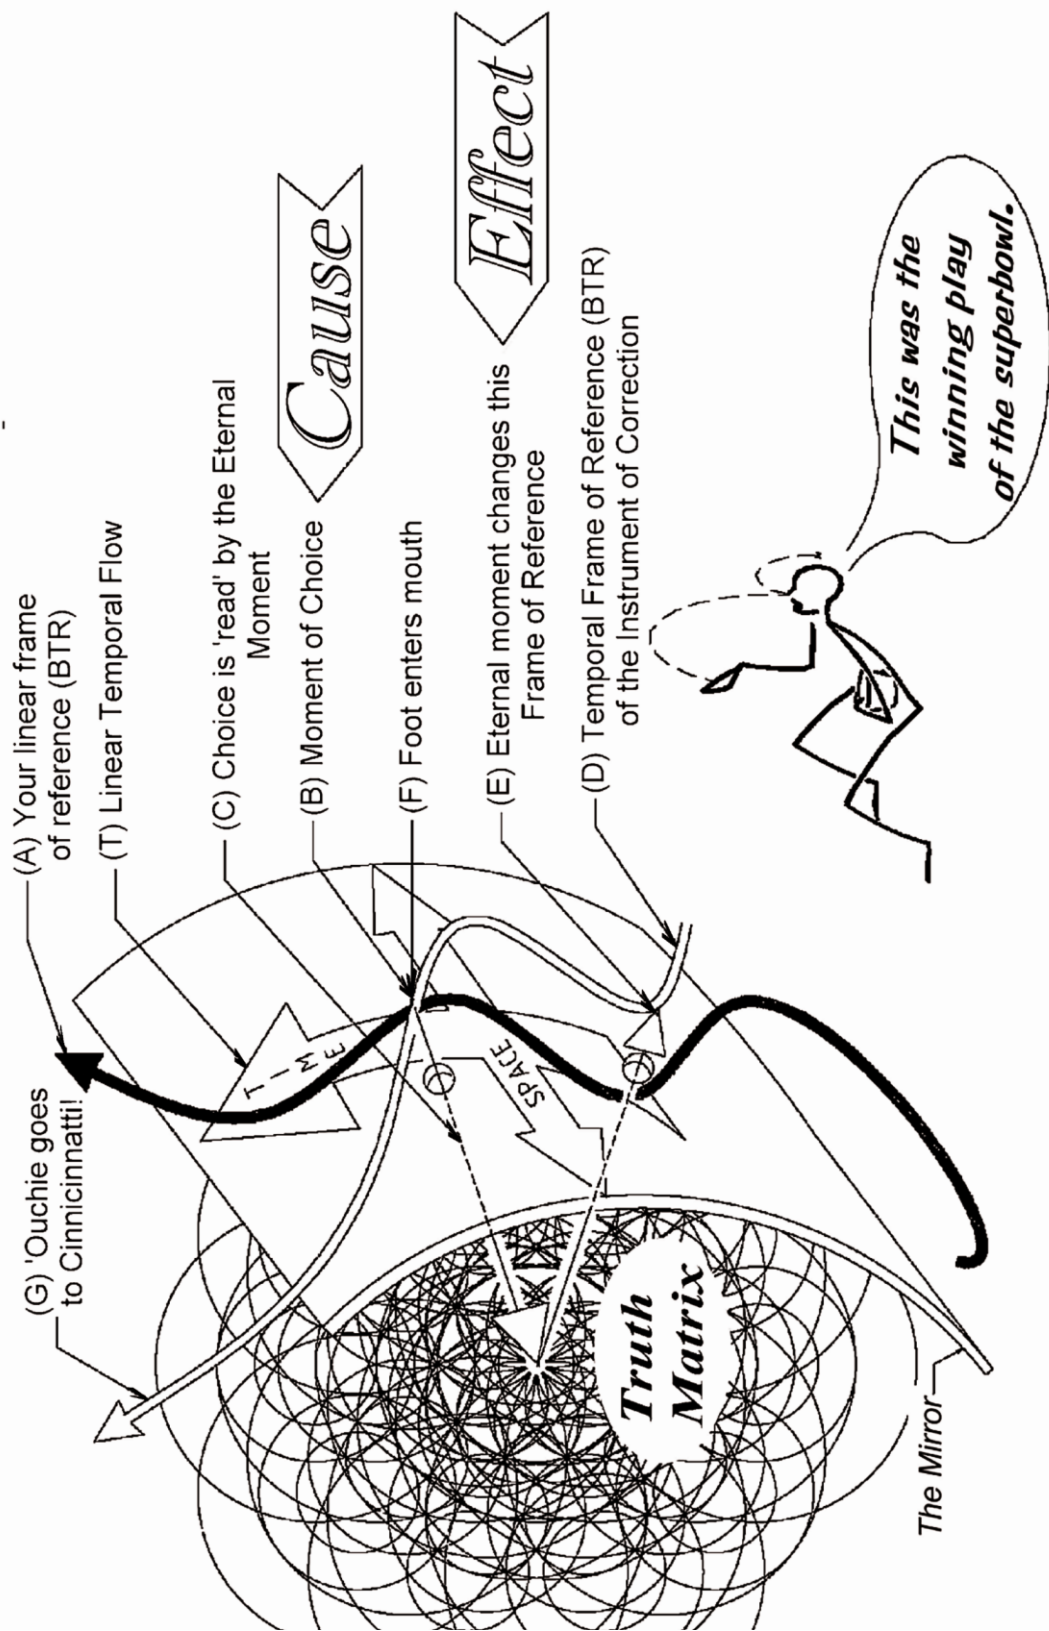 (G) 'Ouchie goes
to Cinnicinnatti!
(A) Your linear frame
of reference (BTR)
(T) Linear Temporal Flow
(C) Choice is 'read' by the Eternal
Moment
(B) Moment of Choice
(F) Foot enters mouth
(E) Eternal moment changes this
Frame of Reference
(D) Temporal Frame of Reference (BTR)
of the Instrument of Correction
Cause
Effect
TIME
SPACE
Truth
Matrix
The Mirror
This was the
winning play
of the superbowl.